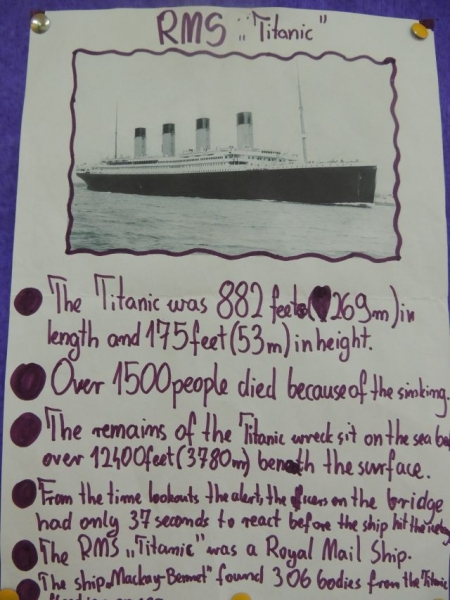 RMS „Titanic"
The Titanic was 882 feet (269m) in
length and 175 feet (53m) in height.
Over 1500 people died because of the sinking.
The remains of the Titanic wreck sit on the sea
over 12400 feet (3780m) beneath the surface.
From the time lookouts the alert, the on the bridge
had only 37 seconds to react before the ship hit the
The RMS „Titanic" was a Royal Mail Ship.
The ship „Mackay-Bennet" found 306 bodies from the Titanic